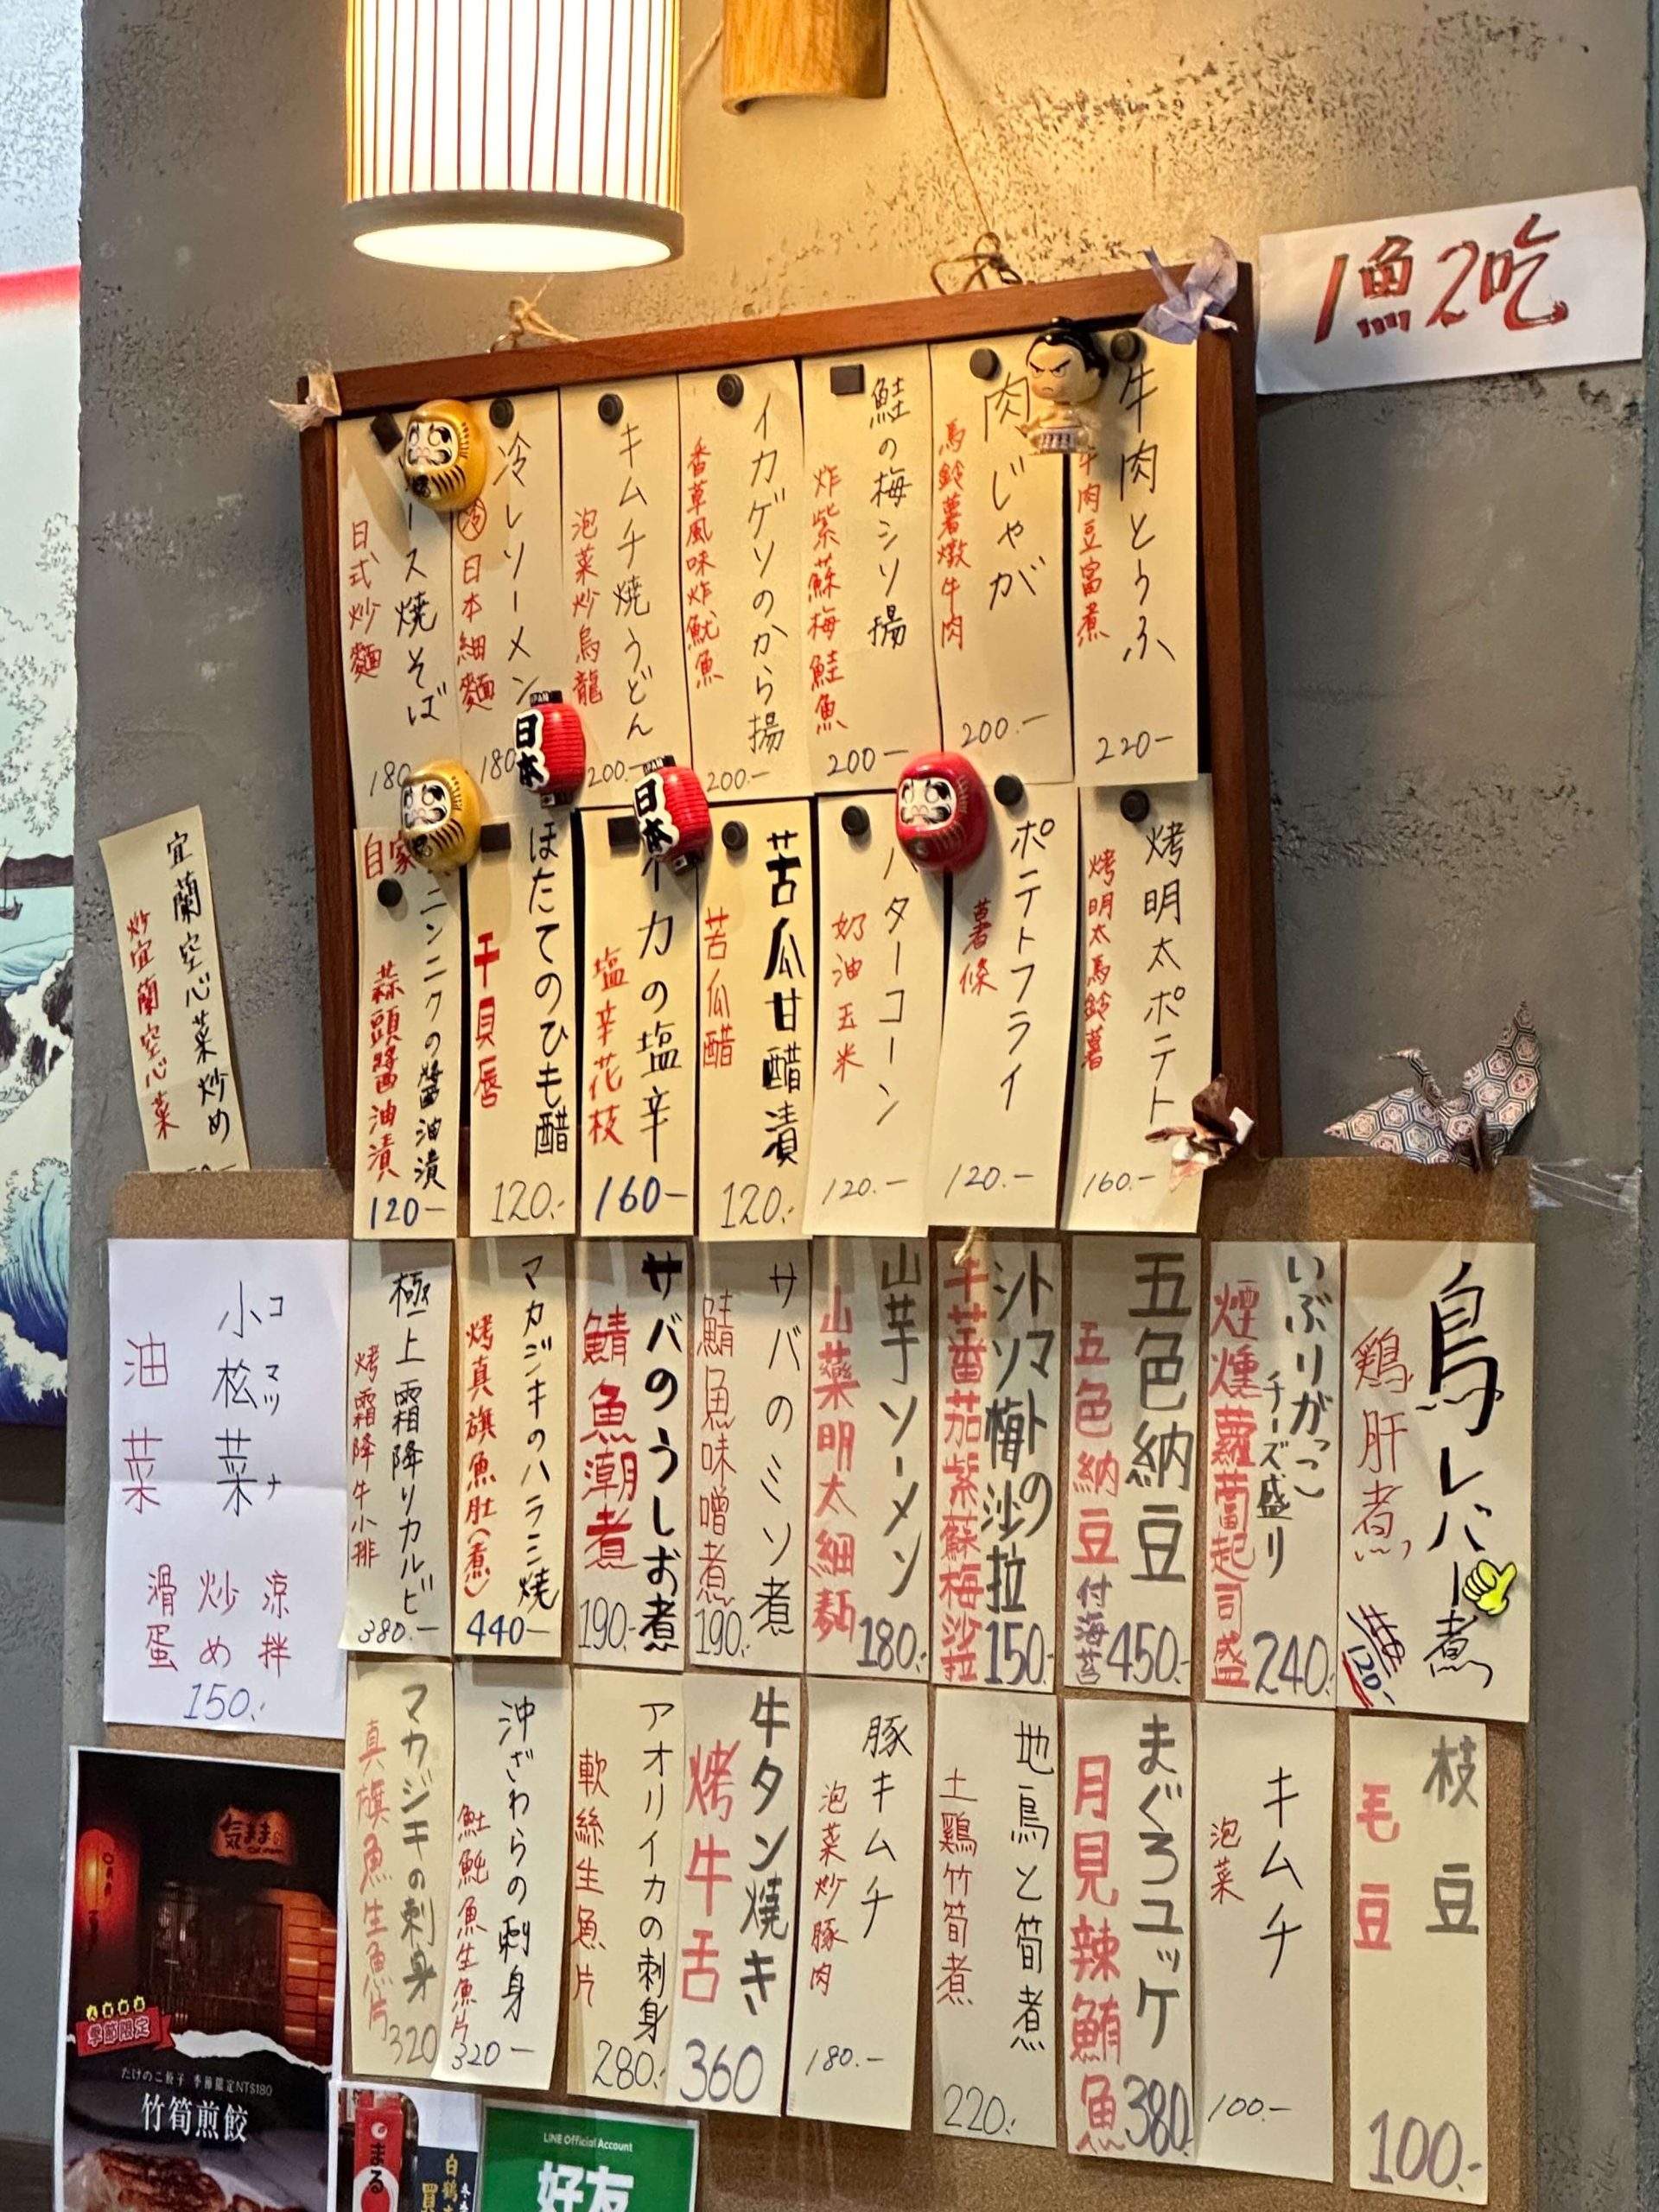 1魚2吃
牛肉とうふ
牛肉豆富煮
220-
肉じゃが
馬鈴薯燉牛肉
200.-
鮭の梅シソ揚
炸紫蘇梅鮭魚
200-
イカゲソのから揚
香草風味炸魷魚
200.-
キムチ焼うどん
泡菜炒烏龍
200.-
冷レソーメン
冷 日本細麵
180
ース焼そば
日式炒麵
180
烤明太ポテト
烤明太馬鈴薯
160.-
ポテトフライ
薯條
120.-
バターコーン
奶油玉米
120.-
苦瓜甘醋漬
苦瓜醋
120.-
イカの塩辛
塩辛花枝
160-
ほたてのひも醋
干貝唇
120.-
自家
ニンニクの醬油漬
蒜頭醬油漬
120-
宜蘭空心菜炒め
炒宜蘭空心菜
鳥レバー煮
鶏肝煮
120.-
いぶりがっこ
チーズ盛り
煙燻蘿蔔起司盛
240.-
五色納豆
五色納豆付海苔
450.-
トマトの
シソ梅沙拉
干番茄紫蘇梅沙拉
150.-
山芋ソーメン
山藥明太細麵
180.-
サバのミソ煮
鯖魚味噌煮
190.-
サバのうしお煮
鯖魚潮煮
190.-
マカジキのハラミ焼
烤真旗魚肚(煮)
440-
極上霜降りカルビ
烤霜降牛小排
380.-
小松菜
コマツナ
油菜
涼拌
炒め
滑蛋
150.-
枝豆
毛豆
100.-
キムチ
泡菜
100.-
まぐろユッケ
月見辣鮪魚
380.-
地鳥と筍煮
土鶏竹筍煮
220.-
豚キムチ
泡菜炒豚肉
180.-
牛タン焼き
烤牛舌
360
アオリイカの刺身
軟絲生魚片
280.-
沖ざわらの刺身
魠魠魚生魚片
320-
マカジキの刺身
真旗魚生魚片
320
日本
日本
気まま
季節限定
たけのこ餃子 季節限定NT$180
竹筍煎餃
まる
白鶴
LINE Official Account
好友